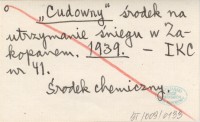 „Cudowny” środek na
utrzymanie śniegu w Za-
kopanem. 1939. – IKC
nr 41.
Środek chemiczny.